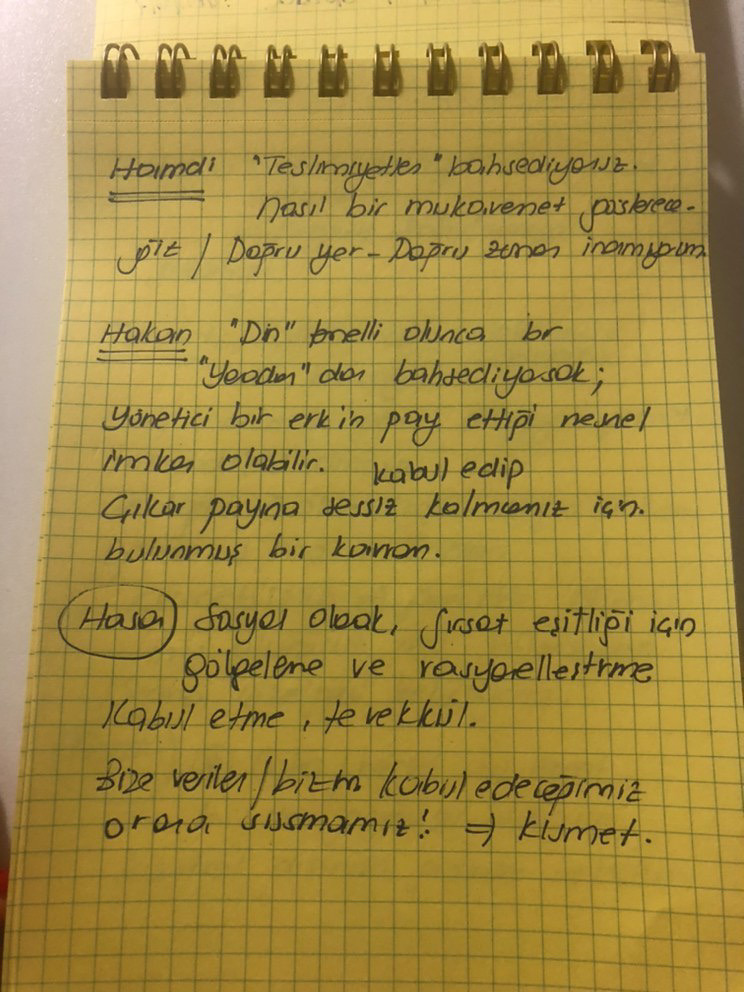 Hamdi "Teslimiyetten" bahsediyoruz.
Nasıl bir mukavemet göstерece-
ğiz / Doğru yer - Doğru zaman inanmıyorum
Hakan "Din" temelli olunca bir
"Yaradan" dan bahsediyorsak;
Yönetici bir erkin pay ettiği nesnel
imkan olabilir. kabul edip
Çıkar payına sessiz kalmamız için.
bulunmuş bir kanon.
Hasan Sosyal olarak, fırsat eşitliği için
gölgeleme ve rasyonelleştirme
Kabul etme, tevekkül.
Bize verilen / bizim kabul edeceğimiz
orana susmamız! => kısmet.